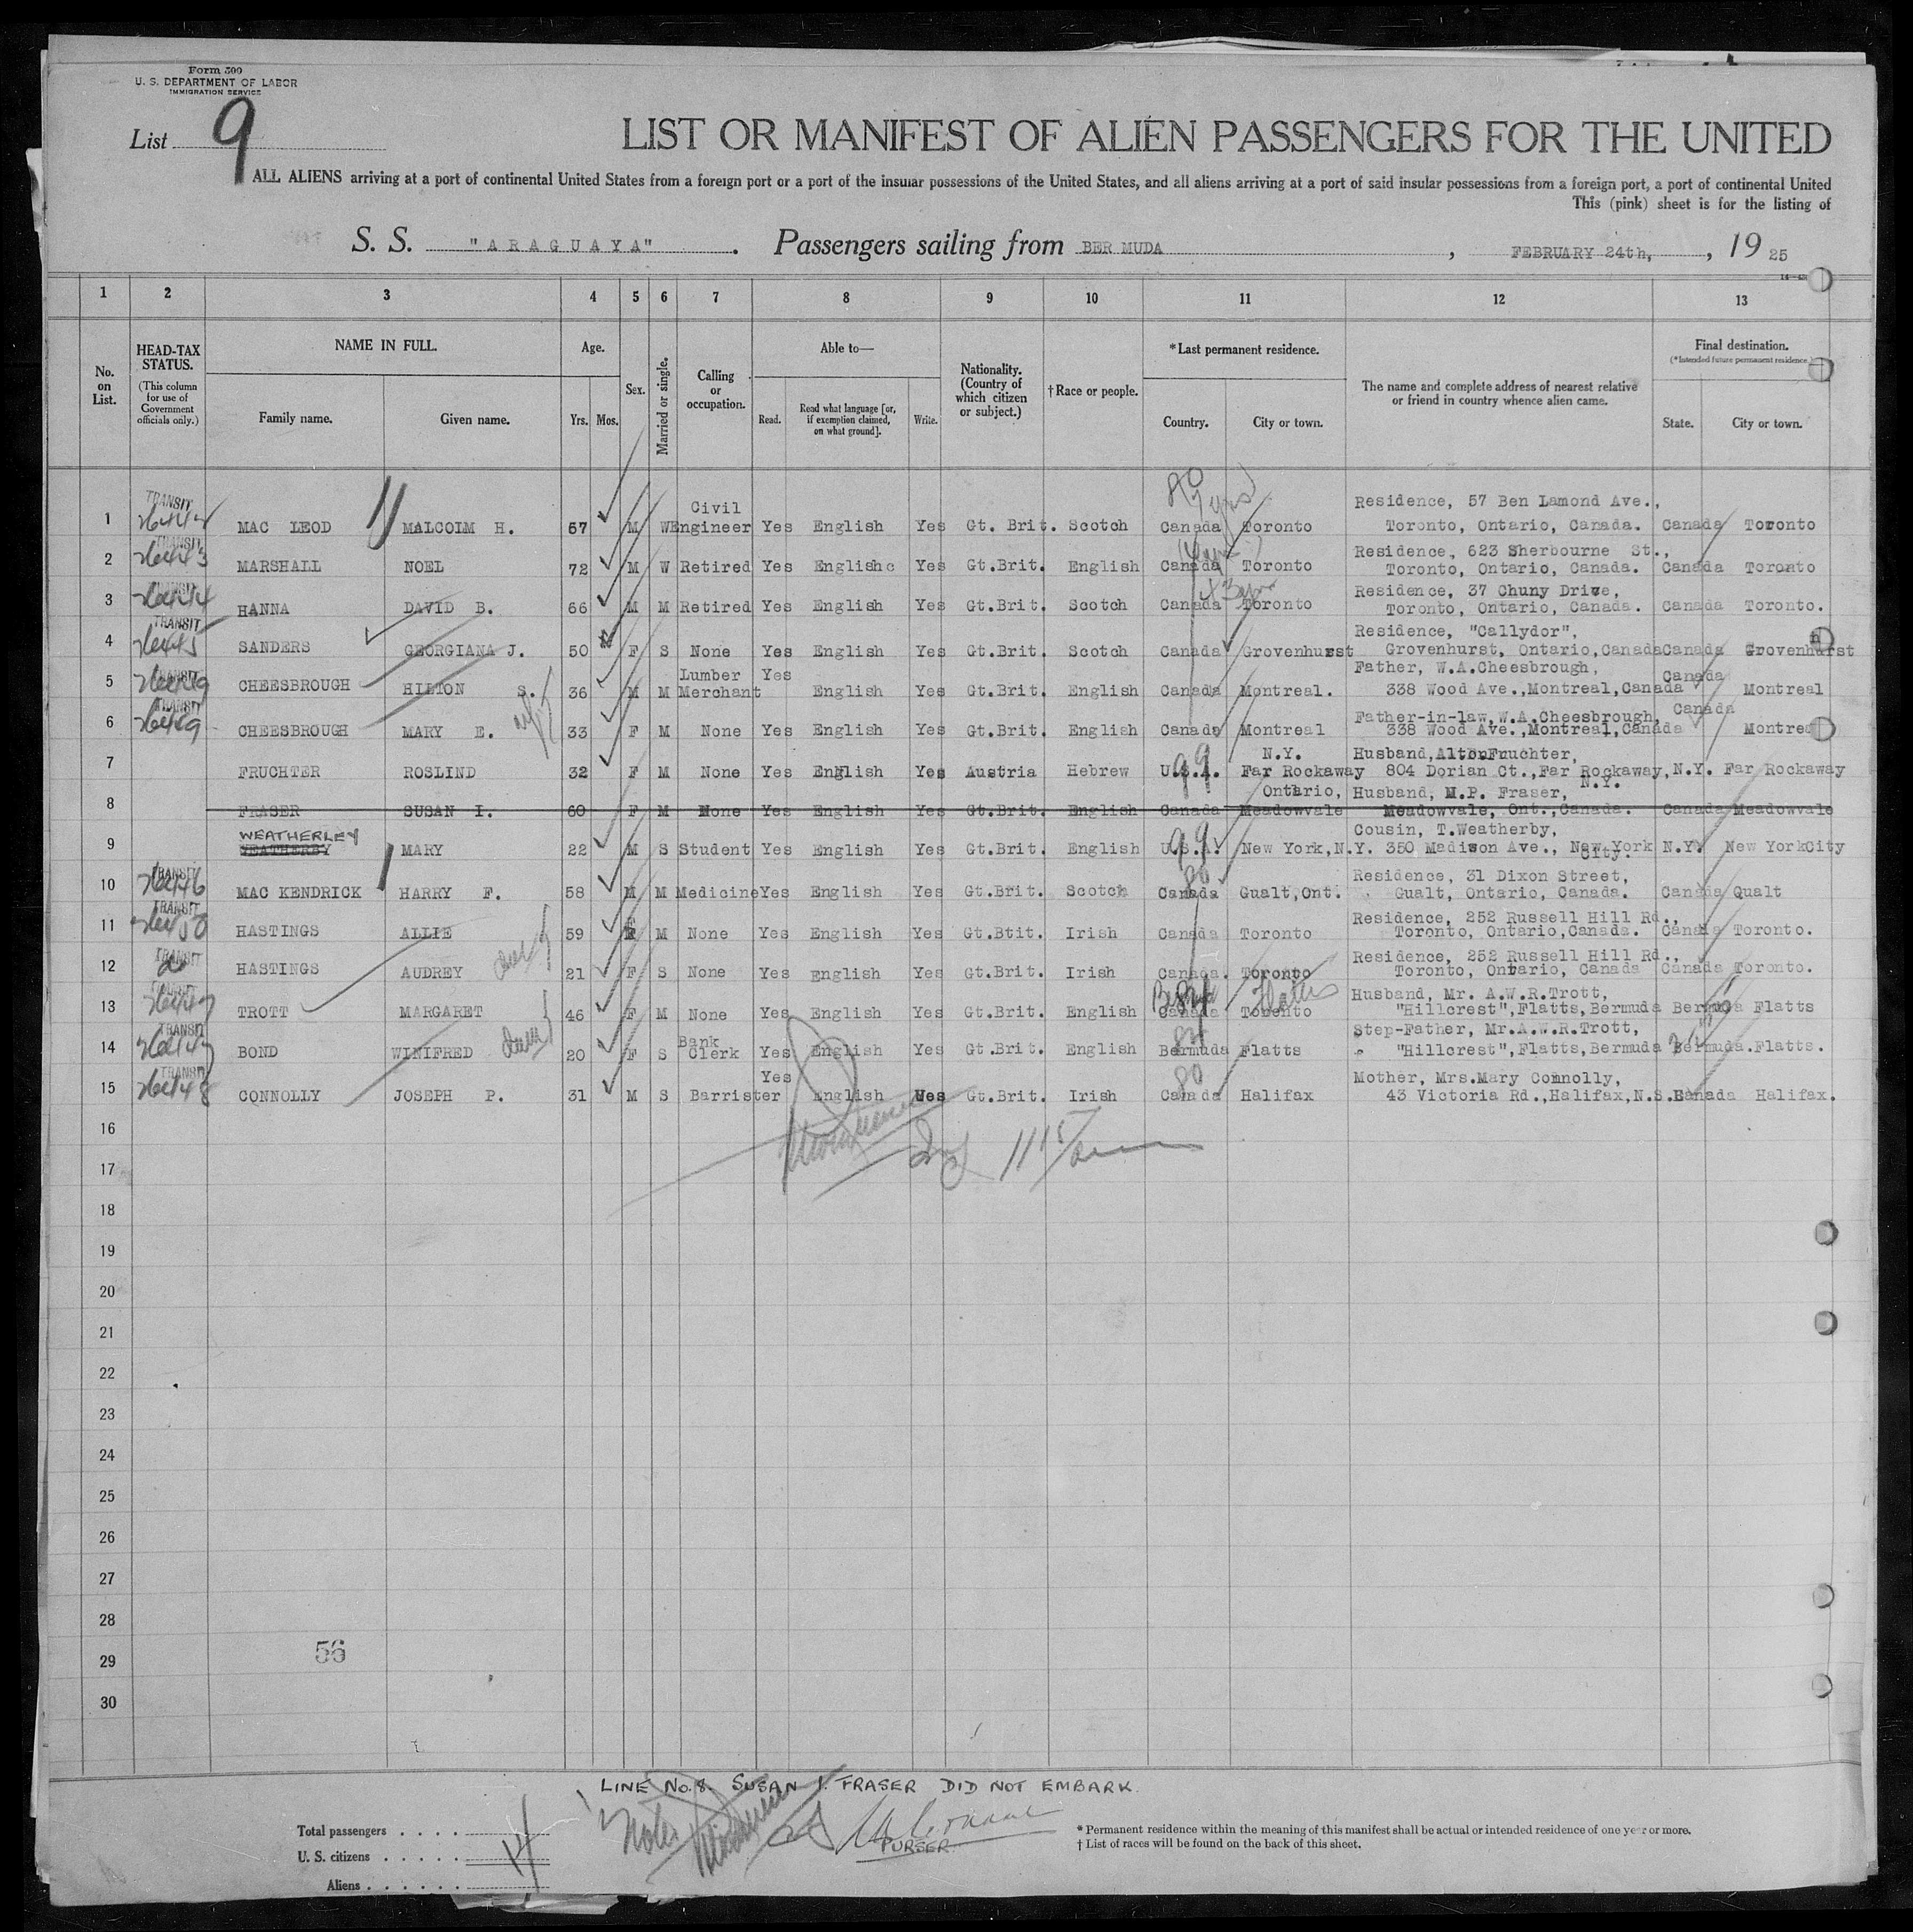 Form 500
U. S. DEPARTMENT OF LABOR
IMMIGRATION SERVICE
List 9
LIST OR MANIFEST OF ALIEN PASSENGERS FOR THE UNITED
ALL ALIENS arriving at a port of continental United States from a foreign port or a port of the insular possessions of the United States, and all aliens arriving at a port of said insular possessions from a foreign port, a port of continental United
This (pink) sheet is for the listing of
S. S. "ARAGUAYA" . Passengers sailing from BERMUDA , FEBRUARY 24th, , 19 25
1 2 3 4 5 6 7 8 9 10 11 12 13
No. on List.
HEAD-TAX STATUS.
(This column for use of Government officials only.)
NAME IN FULL.
Family name. Given name.
Age.
Yrs. Mos.
Sex.
Married or single.
Calling or occupation.
Able to—
Read. Read what language [or, if exemption claimed, on what ground]. Write.
Nationality. (Country of which citizen or subject.)
†Race or people.
*Last permanent residence.
Country. City or town.
The name and complete address of nearest relative or friend in country whence alien came.
Final destination.
(*Intended future permanent residence.)
State. City or town.
1 TRANSIT MAC LEOD MALCOLM H. 57 M W Civil Engineer Yes English Yes Gt. Brit. Scotch Canada Toronto Residence, 57 Ben Lamond Ave., Toronto, Ontario, Canada. Canada Toronto
2 TRANSIT MARSHALL NOEL 72 M W Retired Yes Englishc Yes Gt.Brit. English Canada Toronto Residence, 623 Sherbourne St., Toronto, Ontario, Canada. Canada Toronto
3 HANNA DAVID B. 66 M M Retired Yes English Yes Gt.Brit. Scotch Canada Toronto Residence, 37 Chuny Drive, Toronto, Ontario, Canada. Canada Toronto.
4 TRANSIT SANDERS GEORGIANA J. 50 F S None Yes English Yes Gt.Brit. Scotch Canada Grovenhurst Residence, "Callydor", Grovenhurst, Ontario,Canada Canada Grovenhurst
5 TRANSIT CHEESBROUGH HILTON S. 36 M M Lumber Merchant Yes English Yes Gt.Brit. English Canada Montreal. Father, W.A.Cheesbrough, 338 Wood Ave.,Montreal,Canada Canada Montreal
6 TRANSIT CHEESBROUGH MARY E. 33 F M None Yes English Yes Gt.Brit. English Canada Montreal Father-in-law,W.A.Cheesbrough, 338 Wood Ave.,Montreal,Canada Canada Montreal
7 FRUCHTER ROSLIND 32 F M None Yes English Yes Austria Hebrew U.S.A. 99 N.Y. Far Rockaway Husband, Fruchter, 804 Dorian Ct.,Far Rockaway,N.Y. N.Y. Far Rockaway
8 FRASER SUSAN I. 60 F M None Yes English Yes Gt.Brit. English Canada Ontario, Meadowvale Husband, M.P. Fraser, Meadowvale, Ont.,Canada. Canada Meadowvale
9 WEATHERLEY WEATHERBY MARY 22 M S Student Yes English Yes Gt.Brit. English U.S.A. 99 New York,N.Y. Cousin, T.Weatherby, 350 Madison Ave., New York City. N.Y. New YorkCity
10 TRANSIT MAC KENDRICK HARRY F. 58 M M Medicine Yes English Yes Gt.Brit. Scotch Canada Gualt,Ont. Residence, 31 Dixon Street, Gualt, Ontario, Canada. Canada Qualt
11 TRANSIT HASTINGS ALLIE 59 F M None Yes English Yes Gt.Btit. Irish Canada Toronto Residence, 252 Russell Hill Rd., Toronto, Ontario,Canada. Canada Toronto.
12 TRANSIT HASTINGS AUDREY 21 F S None Yes English Yes Gt.Brit. Irish Canada. Toronto Residence, 252 Russell Hill Rd., Toronto, Ontario, Canada Canada Toronto.
13 TRANSIT TROTT MARGARET 46 F M None Yes English Yes Gt.Brit. English Canada Toronto Flatts Husband, Mr. A.W.R.Trott, "Hillcrest",Flatts,Bermuda Bermuda Flatts
14 TRANSIT BOND WINIFRED 20 F S Bank Clerk Yes English Yes Gt.Brit. English Bermuda Flatts Step-Father, Mr.A.W.R.Trott, "Hillcrest",Flatts,Bermuda Bermuda.Flatts.
15 TRANSIT CONNOLLY JOSEPH P. 31 M S Barrister Yes English Yes Gt.Brit. Irish Canada 80 Halifax Mother, Mrs.Mary Connolly, 43 Victoria Rd.,Halifax,N.S. Canada Halifax.
16
17
18
19
20
21
22
23
24
25
26
27
28
29
30
56
LINE No.8. SUSAN I. FRASER DID NOT EMBARK.
PURSER
Total passengers . . . .
U. S. citizens . . . . . 14
Aliens . . . . . .
* Permanent residence within the meaning of this manifest shall be actual or intended residence of one year or more.
† List of races will be found on the back of this sheet.